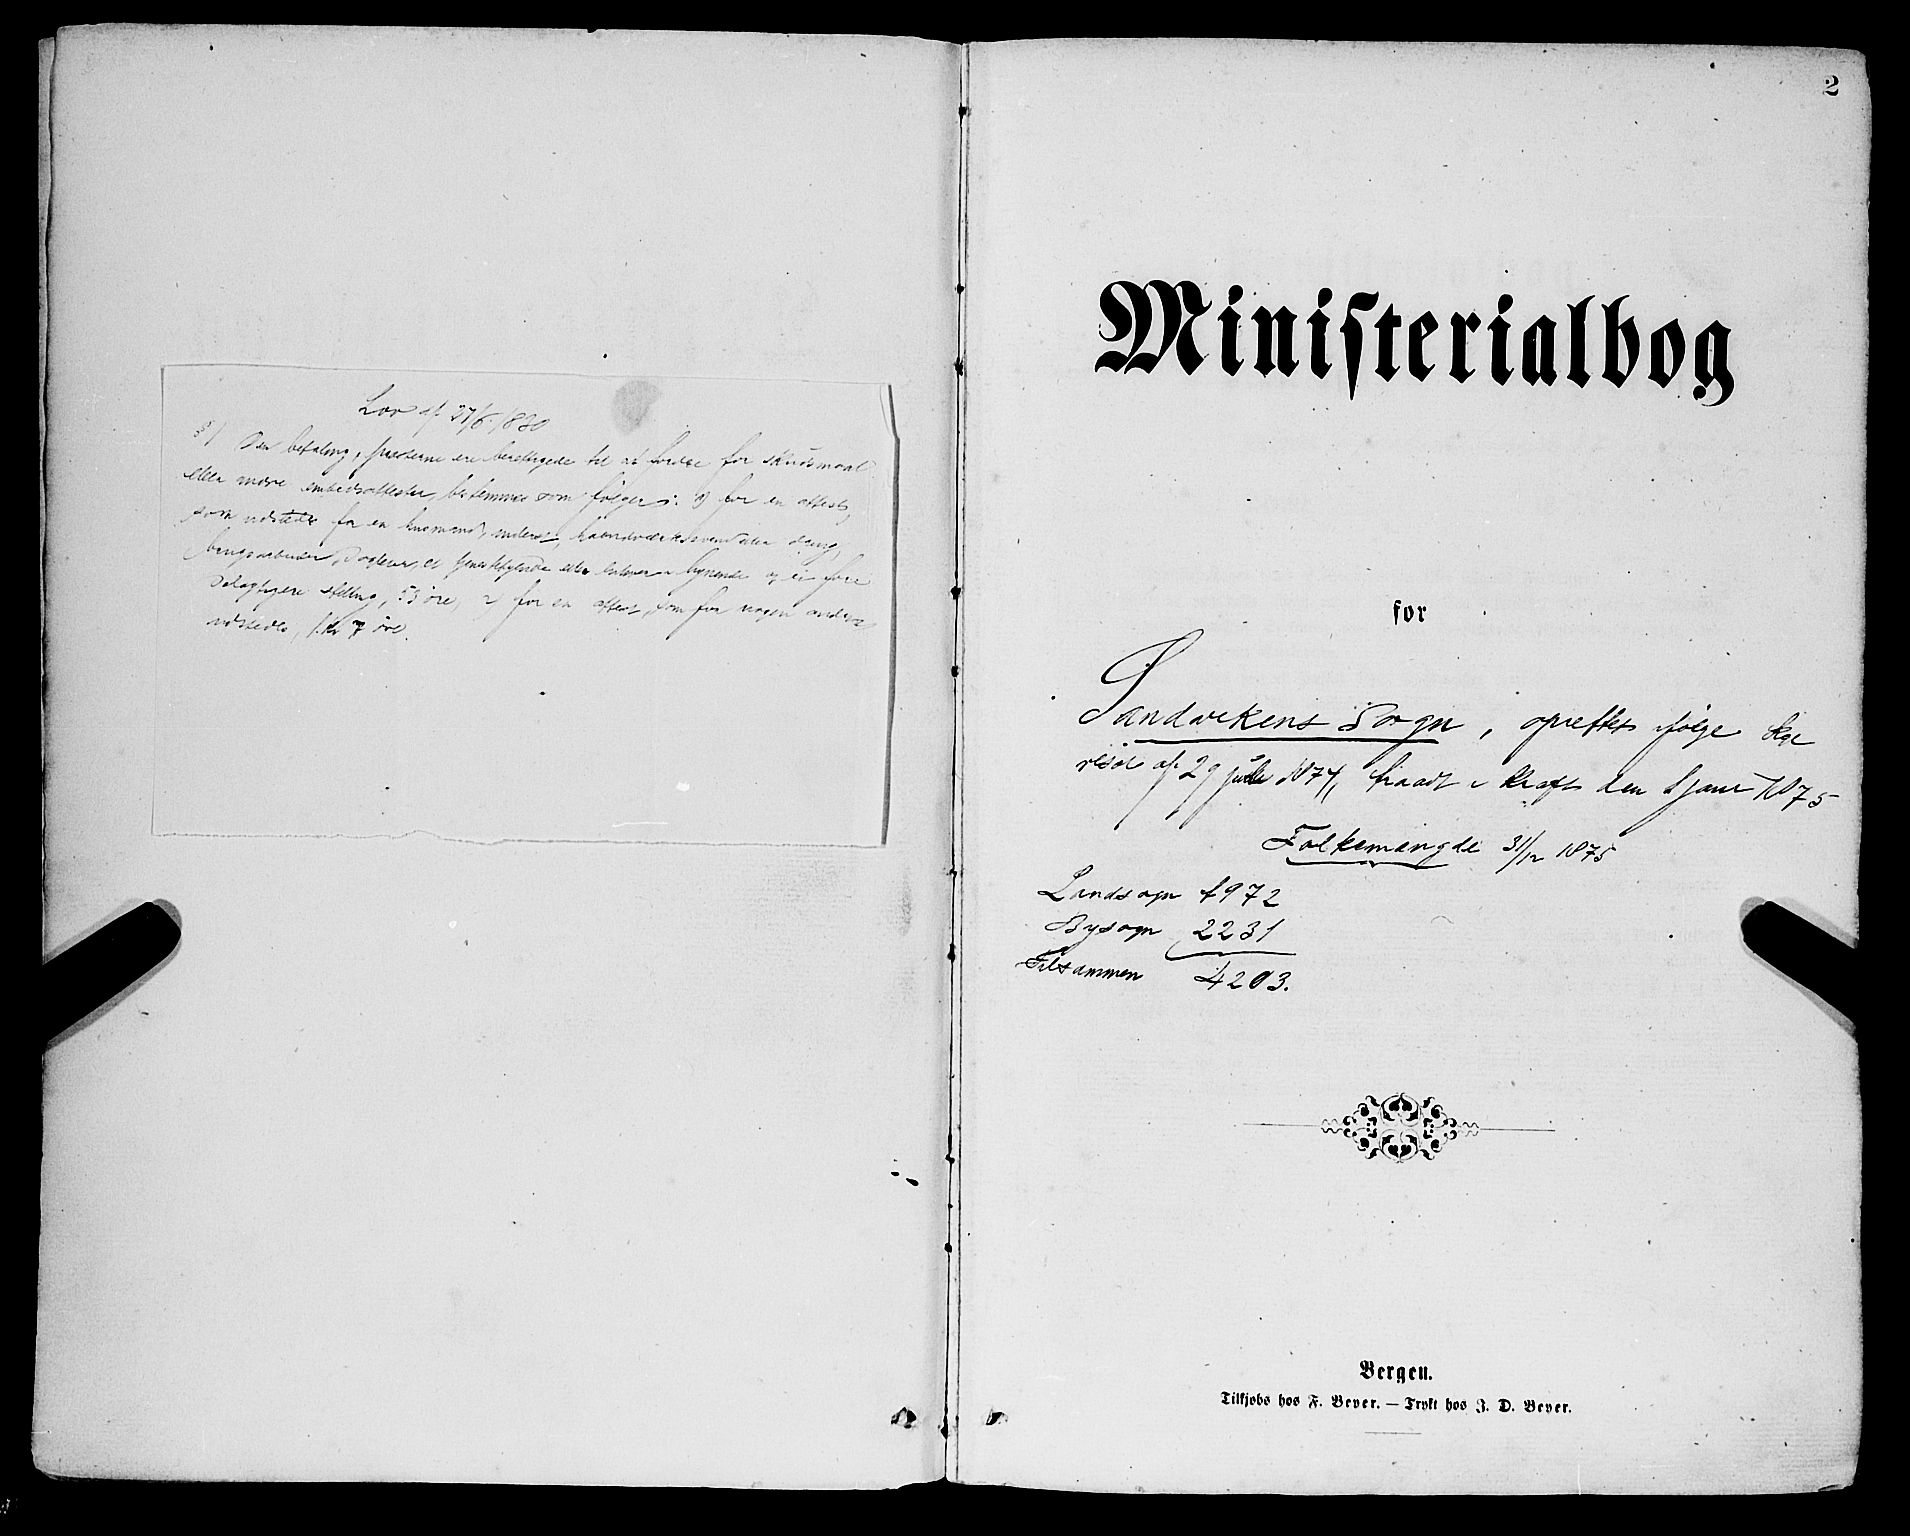 Lov af 27/6 1880
§ 1 Den betaling, præsterne ere berettigede til at fordre for skudsmaal
eller andre embedsattester, bestemmes som følger: 1) for en attest,
som udstedes for en husmand, inderst, haandværkssvend eller
bergsarbeider, et tjenestetyende eller enhver i lignende og ei
fordelagtigere stilling, 53 øre, 2) for en attest, som for nogen anden
udstedes, 1 kr 7 øre.
2
Ministerialbog
for
Sandvikens Sogn, oprettet ifølge kgl
resol af 29 juli 1874, traadt i kraft den 1 janr 1875
Folkemængde 31/12 1875
Landsogn 1972
Bysogn 2231
Tilsammen 4203.
Bergen.
Tilkjøbs hos F. Beyer. — Trykt hos J. D. Beyer.